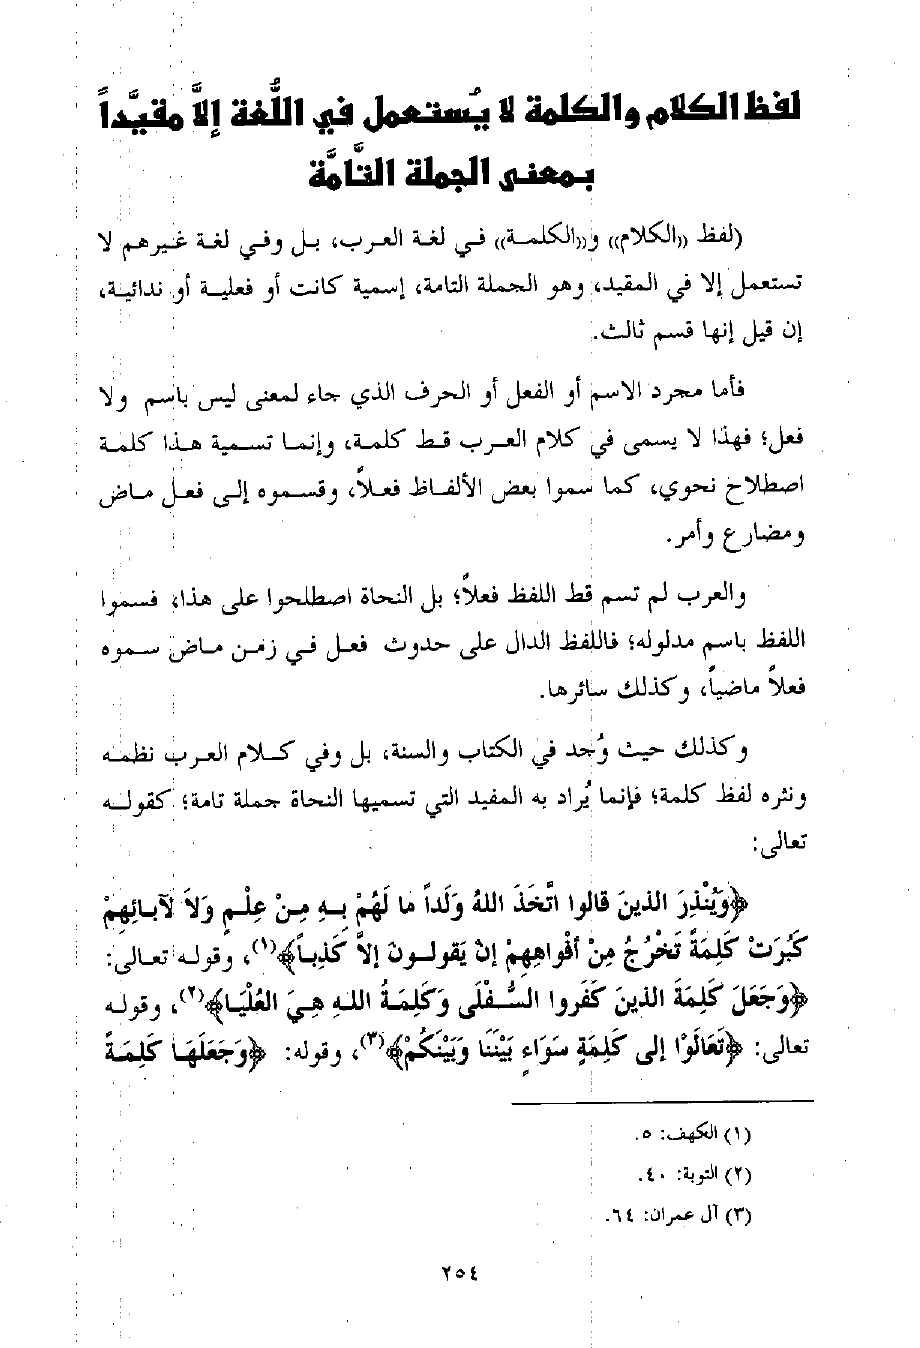 لفظ الكلام والكلمة لا يُستعمل في اللُّغة إلاَّ مقيَّداً
بمعنى الجملة التَّامَّة
(لفظ ((الكلام)) و((الكلمة)) في لغة العرب، بل وفي لغة غيرهم لا
تستعمل إلا في المقيد، وهو الجملة التامة، إسمية كانت أو فعلية أو ندائية،
إن قيل إنها قسم ثالث.
فأما مجرد الاسم أو الفعل أو الحرف الذي جاء لمعنى ليس باسم ولا
فعل؛ فهذا لا يسمى في كلام العرب قط كلمة، وإنما تسمية هذا كلمة
اصطلاح نحوي، كما سموا بعض الألفاظ فعلاً، وقسموه إلى فعل ماض
ومضارع وأمر.
والعرب لم تسم قط اللفظ فعلاً؛ بل النحاة اصطلحوا على هذا، فسموا
اللفظ باسم مدلوله؛ فاللفظ الدال على حدوث فعل في زمن ماض سموه
فعلاً ماضياً، وكذلك سائرها.
وكذلك حيث وُجد في الكتاب والسنة، بل وفي كلام العرب نظمه
ونثره لفظ كلمة؛ فإنما يُراد به المفيد التي تسميها النحاة جملة تامة؛ كقوله
تعالى:
﴿وَيُنْذِرَ الذينَ قالوا اتَّخَذَ اللهُ وَلَداً ما لَهُمْ بِهِ مِنْ عِلْمٍ وَلاَ لآبائِهِمْ
كَبُرَتْ كَلِمَةً تَخْرُجُ مِنْ أفْواهِهِمْ إنْ يَقولونَ إلاَّ كَذِباً﴾(١)، وقوله تعالى:
﴿وَجَعَلَ كَلِمَةَ الذينَ كَفَروا السُّفْلَى وَكَلِمَةُ اللهِ هِيَ العُلْيَا﴾(٢)، وقوله
تعالى: ﴿تَعَالَوْا إلى كَلِمَةٍ سَوَاءٍ بَيْنَنَا وَبَيْنَكُمْ﴾(٣)، وقوله: ﴿وَجَعَلَهَا كَلِمَةً
(١) الكهف: ٥.
(٢) التوبة: ٤٠.
(٣) آل عمران: ٦٤.
٢٥٤